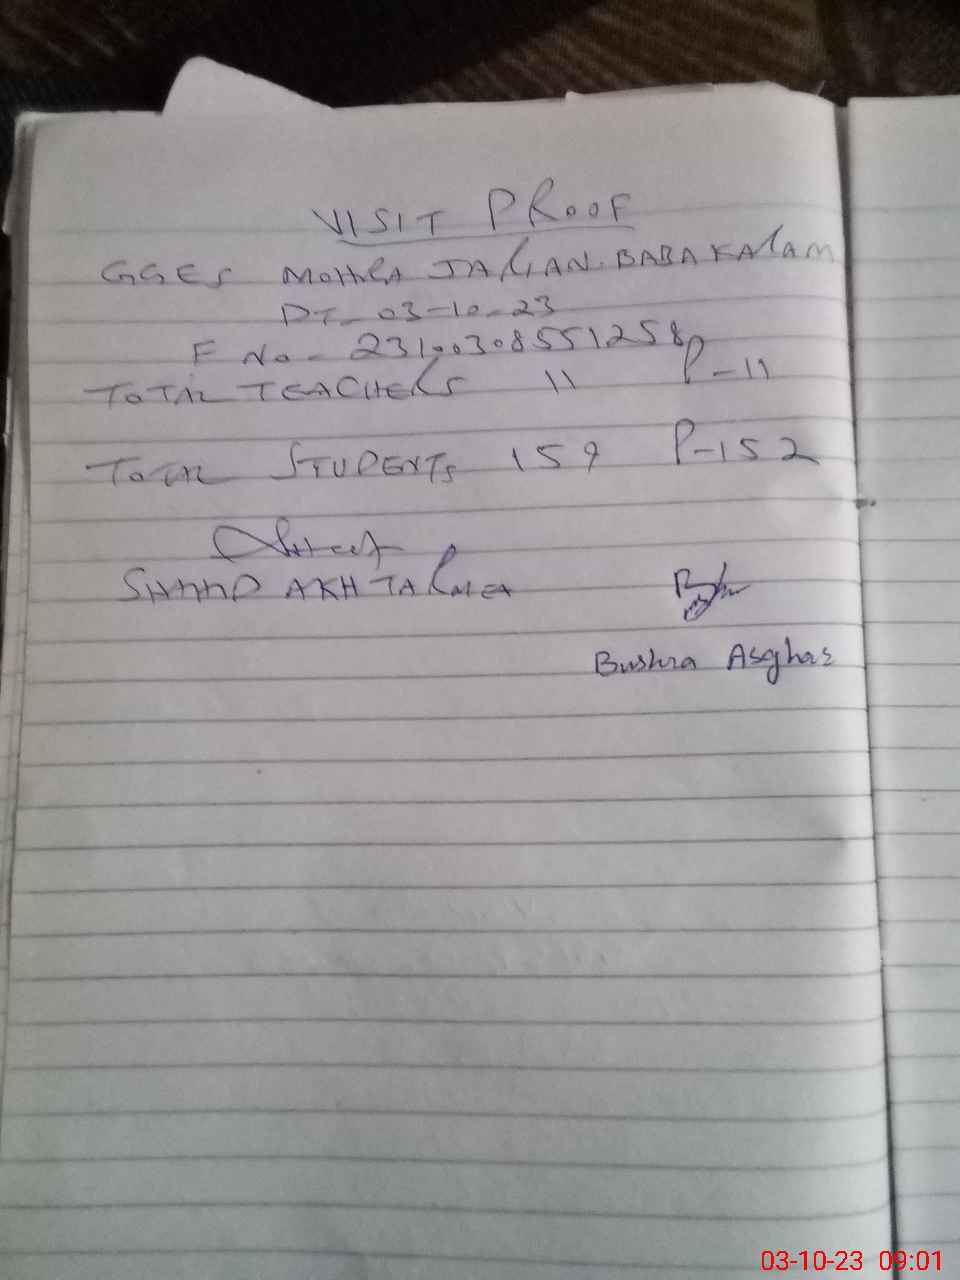 VISIT PROOF
GGES MOHRA JALIAN. BABA KALAM
DT - 03-10-23
F No - 23100308551258
TOTAL TEACHERS 11 P-11
TOTAL STUDENTS 159 P-152
AKHTAR MEA
Bushra Asghar
03-10-23 09:01